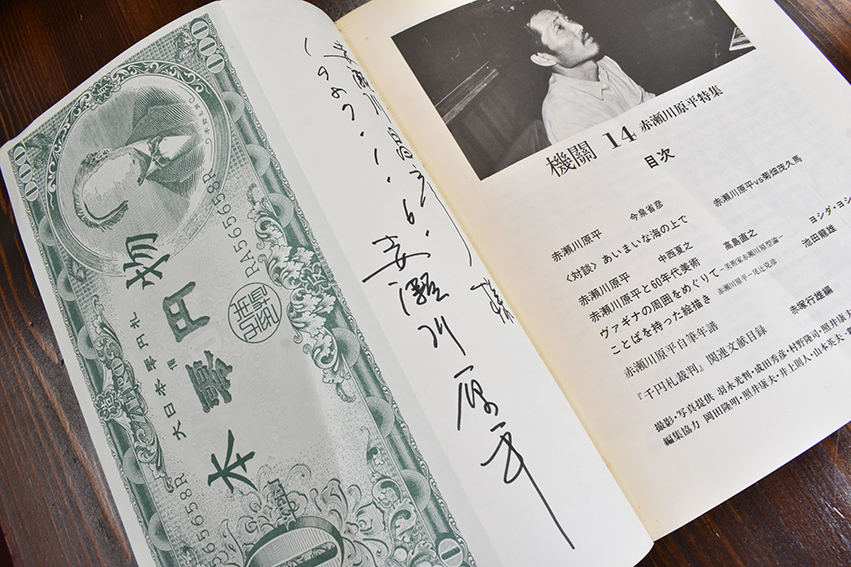 000
000
RA565658R
本零円物
RA565658R
1987.1.6.
赤瀬川原平
機關 14 赤瀬川原平特集
目次
赤瀬川原平 今泉省彦
〈対談〉あいまいな海の上で 赤瀬川原平vs菊畑茂久馬
赤瀬川原平 中西夏之
赤瀬川原平と60年代美術 高島直之
ヴァギナの周囲をめぐりて ヨシダ・ヨシ
ことばを持った絵描き 赤瀬川原平―尾辻克彦 池田龍雄
赤瀬川原平自筆年譜
『千円札裁判』関連文献目録 赤塚行雄編
撮影・写真提供 羽永光利・成田秀彦・村野隆司・照井康夫
編集協力 岡田隆明・照井康夫・井上則人・山本英夫・